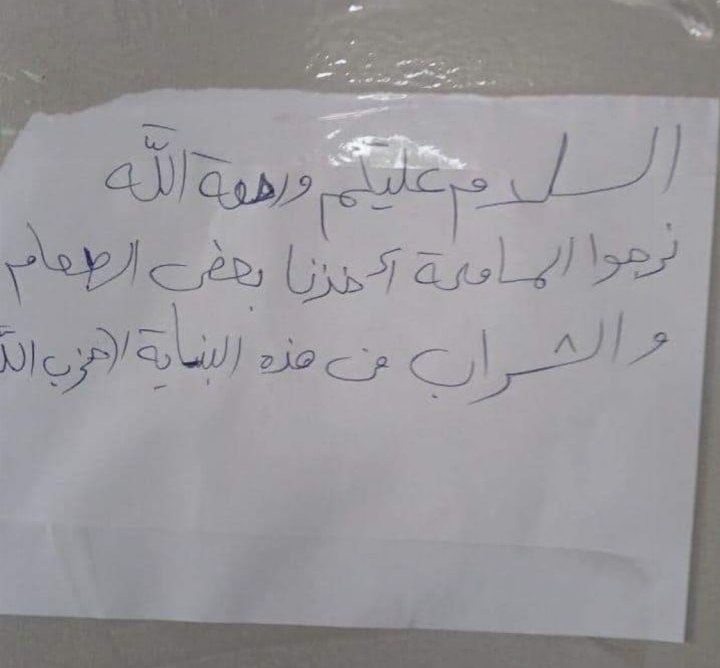 السلام عليكم ورحمة الله
نرجوا المسامحة أخذنا بعض الطعام
والشراب من هذه البناية (حزب الله